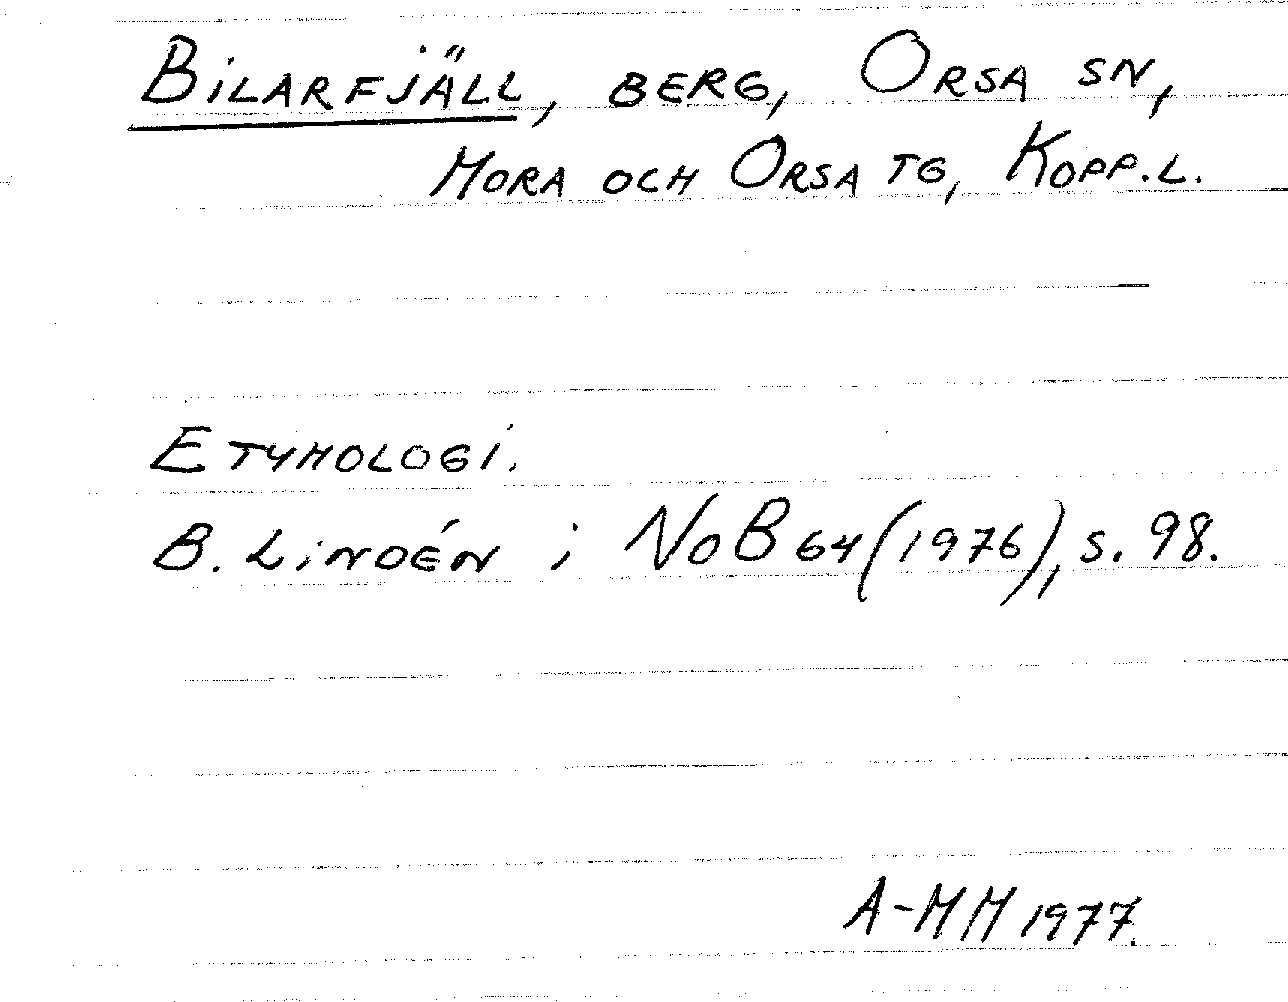 BILARFJÄLL, BERG, ORSA SN,
MORA OCH ORSA TG, KOPP.L.
ETYMOLOGI.
B. LINDÉN i NoB 64 (1976), s. 98.
A-MM 1977.